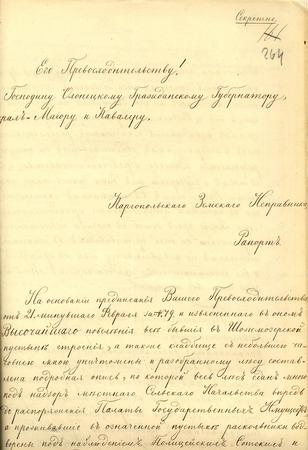 Секретно.
264
Его Превосходительству!
Господину Олонецкому Гражданскому Губернатору,
рал-Маіору и Кавалеру.
Каргопольскаго Земскаго Исправника
Рапортъ.
На основаніи предписанія Вашего Превосходительства
отъ 21. минувшаго Февраля за № 79. и изъясненнаго въ ономъ
Высочайшаго повеленія все бывшія въ
пустынѣ строенія, а также кладбище съ
мною уничтожены и разобранному лесу состав-
лена подробная опись, по которой весь лесъ сданъ мною
подъ надзоръ местнаго Сельскаго Начальства впредь
до распоряженія Палаты Государственныхъ Имуществъ
а проживавшіе въ означенной пустынѣ раскольники
подъ наблюденіемъ Полицейскихъ Сотскихъ и